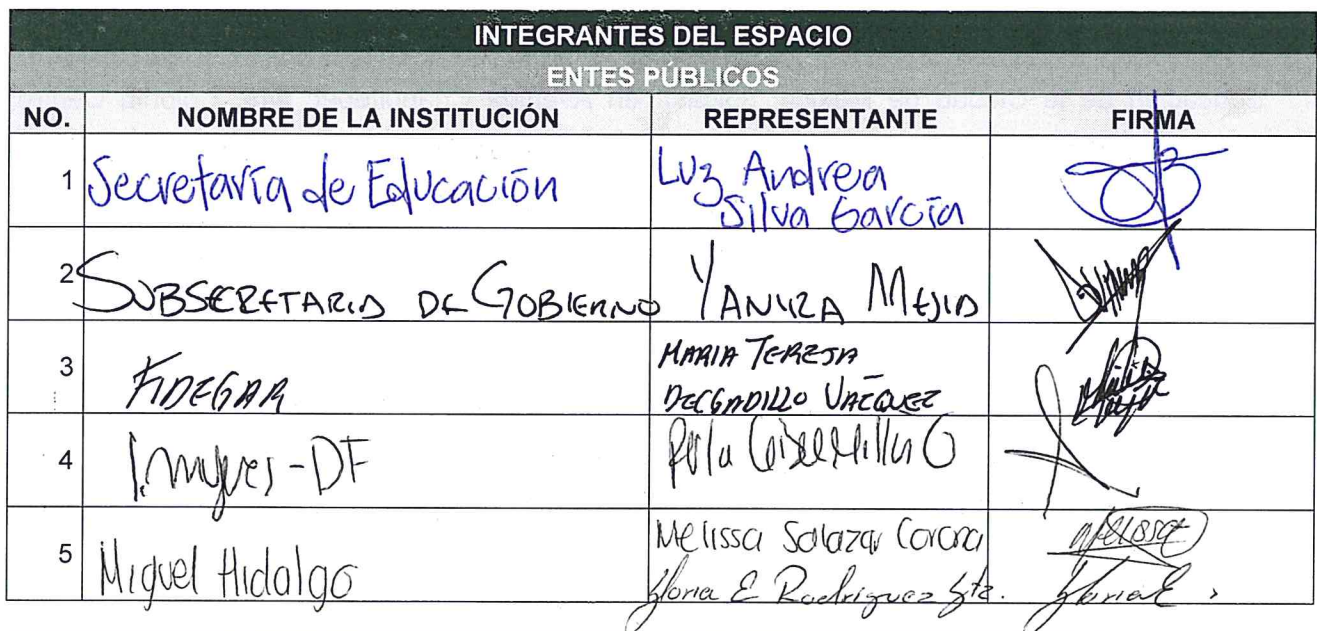 INTEGRANTES DEL ESPACIO
ENTES PÚBLICOS
NO. NOMBRE DE LA INSTITUCIÓN REPRESENTANTE FIRMA
1 Secretaría de Educación Luz Andrea
Silva García
2 SUBSECRETARIA DE GOBIERNO YANIRA MEJIA
3 FIDEGAR MARIA TERESA
DELGADILLO VAZQUEZ
4 Inmujeres-DF
5 Miguel Hidalgo Melissa Salazar Corona Melissa
Gloria E Rodriguez Gloria E.